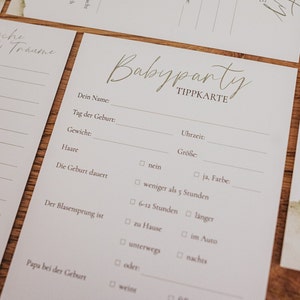 Babyparty
TIPPKARTE
Dein Name:
Tag der Geburt:
Uhrzeit:
Gewicht:
Größe:
Haare
nein
ja, Farbe:
Die Geburt dauert
weniger als 5 Stunden
6-12 Stunden
länger
Der Blasensprung ist
zu Hause
im Auto
unterwegs
nachts
oder:
Papa bei der Geburt
weint
Träume